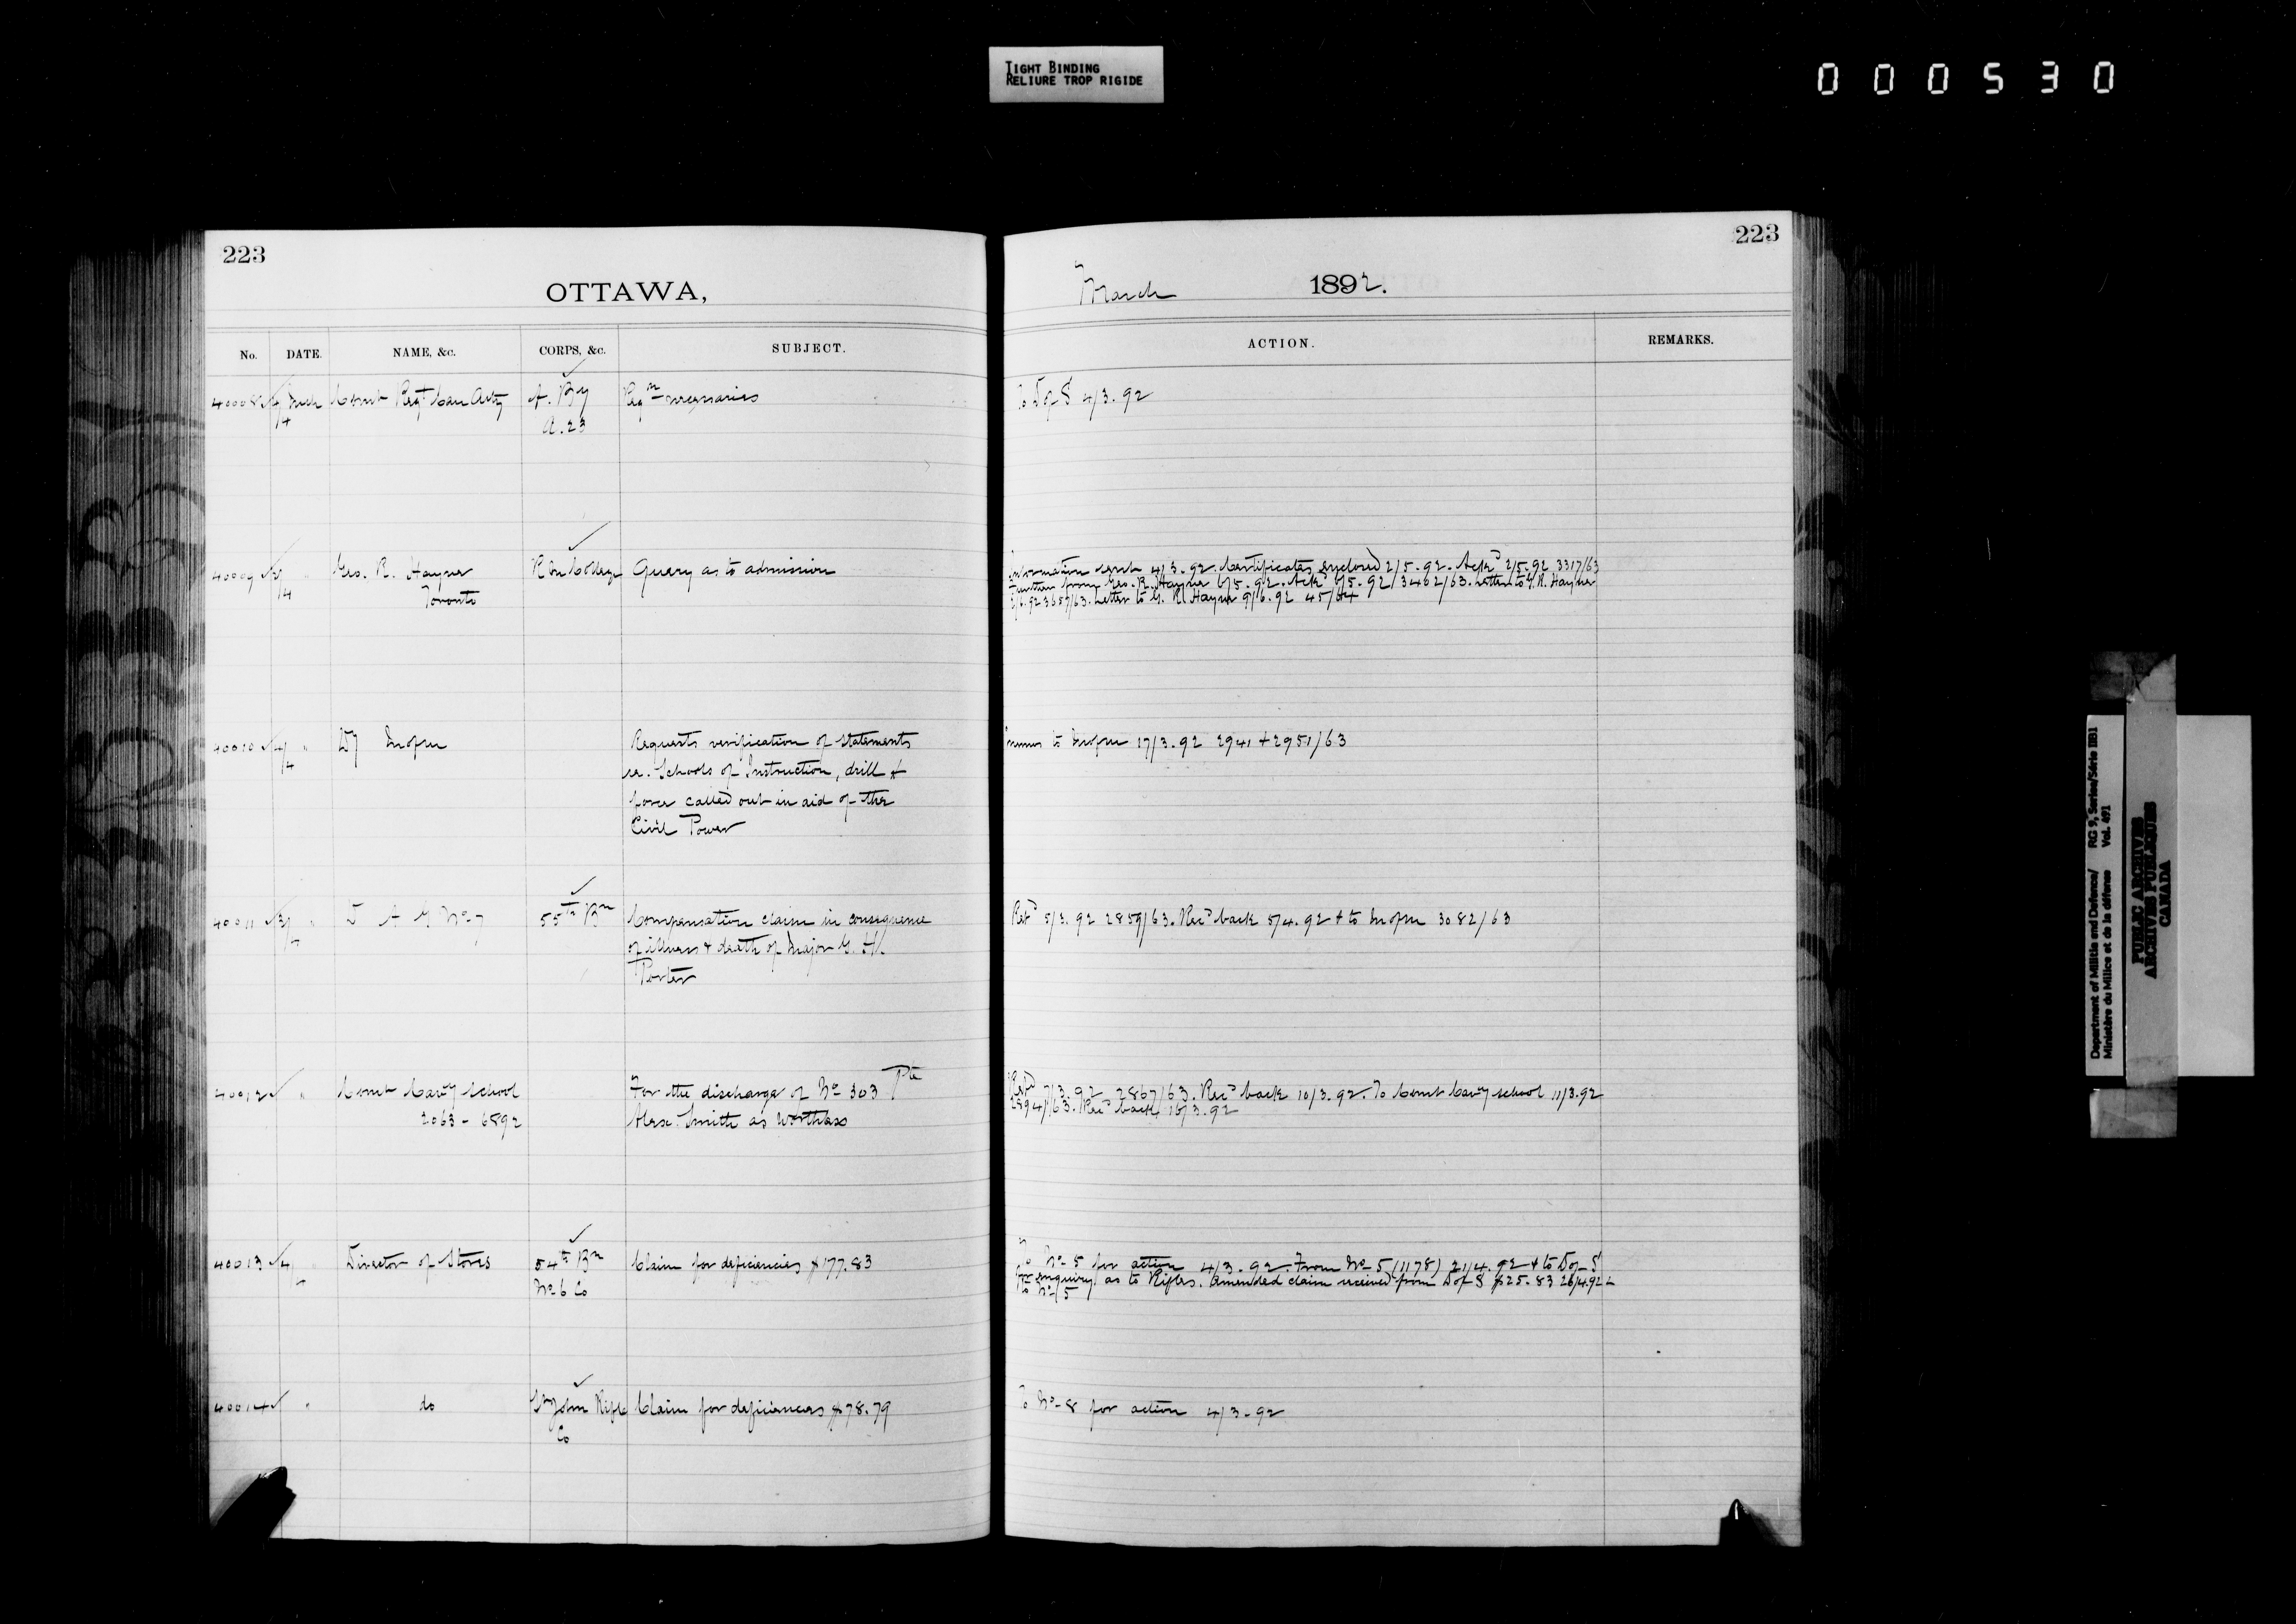 TIGHT BINDING
RELIURE TROP RIGIDE
000530
223
OTTAWA,
No. DATE. NAME, &c. CORPS, &c. SUBJECT.
40008 4/4 Mch Comt Regt Can Arty A. By Reqn necessaries
A. 23
40009 3/4 " Geo. R. Hayner R Mil College Query as to admission
Toronto
40010 4/4 " DM Requests verification of statements
re. Schools of Instruction, drill &
force called out in aid of the
Civil Power
40011 3/4 " D A G No 7 55th Bn Compensation claim in consequence
of illness & death of Major G. H.
Porter
40012 " Comt Cavy School For the discharge of No 303 Pte
2063 - 6892 Alexr. Smith as Worthless
40013 4/4 " Director of Stores 54th Bn Claim for deficiencies $177.83
No 6 Co
40014 " do St John Rifle Claim for deficiencies $78.79
Co
223
March 1892.
ACTION. REMARKS.
To D of S 4/3.92
Information sent 4/3.92. Certificates enclosed 2/5.92. Ackd 2/5.92 3317/63
Further from Geo. R. Hayner 6/5.92. Ackd 6/5.92 3402/63. Letter to G. R. Hayner
3657/63. Letter to G. R. Hayner 9/6.92 45/64
to 17/3.92 2941 + 2951/63
Refd 5/3.92 2859/63. Recd back 5/4.92 & to 3082/63
Refd 7/3.92 2867/63. Recd back 10/3.92. To Comt Cavy School 11/3.92
2894/63. Recd back 16/3.92
To No 5 for action 4/3.92. From No 5 (1178) 21/4.92 & to D of S
for enquiry as to Rifles. Amended claim received from D of S $25.83 26/4.92 &
to No 5
To No 8 for action 4/3.92
Department of Militia and Defence/ RG 9, Series/Série IIB1
Ministère du Milice et de la défence Vol. 491
PUBLIC ARCHIVES
ARCHIVES PUBLIQUES
CANADA